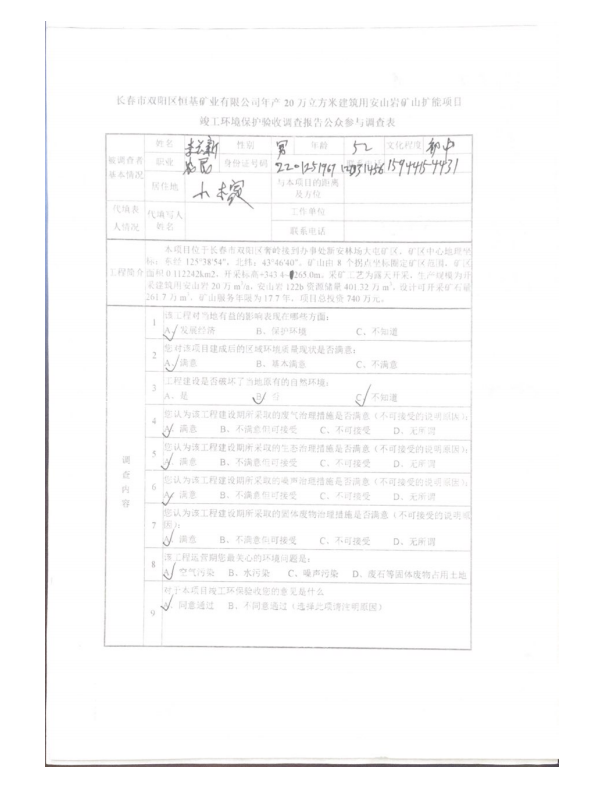 长春市双阳区恒基矿业有限公司年产 20 万立方米建筑用安山岩矿山扩能项目
竣工环境保护验收调查报告公众参与调查表
被调查者基本情况
姓名 性别 男 年龄 52 文化程度 初中
职业 农民 身份证号码
居住地 与本项目的距离及方位
代填表人情况
代填写人姓名 工作单位
联系电话
工程简介
本项目位于长春市双阳区奢岭接到办事处新安林场大屯矿区，矿区中心地理坐
标：东经 125°38′54″，北纬：43°46′40″，矿山由 8 个拐点坐标圈定矿区范围，矿区
面积 0.112242km2，开采标高+343.4-265.0m，采矿工艺为露天开采，生产规模为开
采建筑用安山岩 20 万 m³/a，安山岩 122b 资源储量 401.32 万 m³，设计可开采矿石量
261.7 万 m³，矿山服务年限为 17.7 年，项目总投资 740 万元。
调查内容
1 该工程对当地有益的影响表现在哪些方面：
A、发展经济 B、保护环境 C、不知道
2 您对该项目建成后的区域环境质量现状是否满意：
A、满意 B、基本满意 C、不满意
3 工程建设是否破坏了当地原有的自然环境：
A、是 B、否 C、不知道
4 您认为该工程建设期所采取的废气治理措施是否满意（不可接受的说明原因）：
A、满意 B、不满意但可接受 C、不可接受 D、无所谓
5 您认为该工程建设期所采取的生态治理措施是否满意（不可接受的说明原因）：
A、满意 B、不满意但可接受 C、不可接受 D、无所谓
6 您认为该工程建设期所采取的噪声治理措施是否满意（不可接受的说明原因）：
A、满意 B、不满意但可接受 C、不可接受 D、无所谓
7 您认为该工程建设期所采取的固体废物治理措施是否满意（不可接受的说明原
因）：
A、满意 B、不满意但可接受 C、不可接受 D、无所谓
8 该工程运营期您最关心的环境问题是：
A、空气污染 B、水污染 C、噪声污染 D、废石等固体废物占用土地
9 对于本项目竣工环保验收您的意见是什么
A、同意通过 B、不同意通过（选择此项请注明原因）